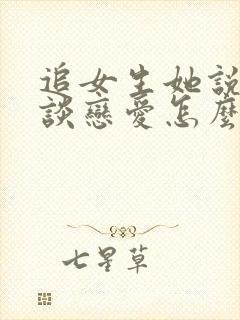 追女生她說
談戀愛怎麼
七星草